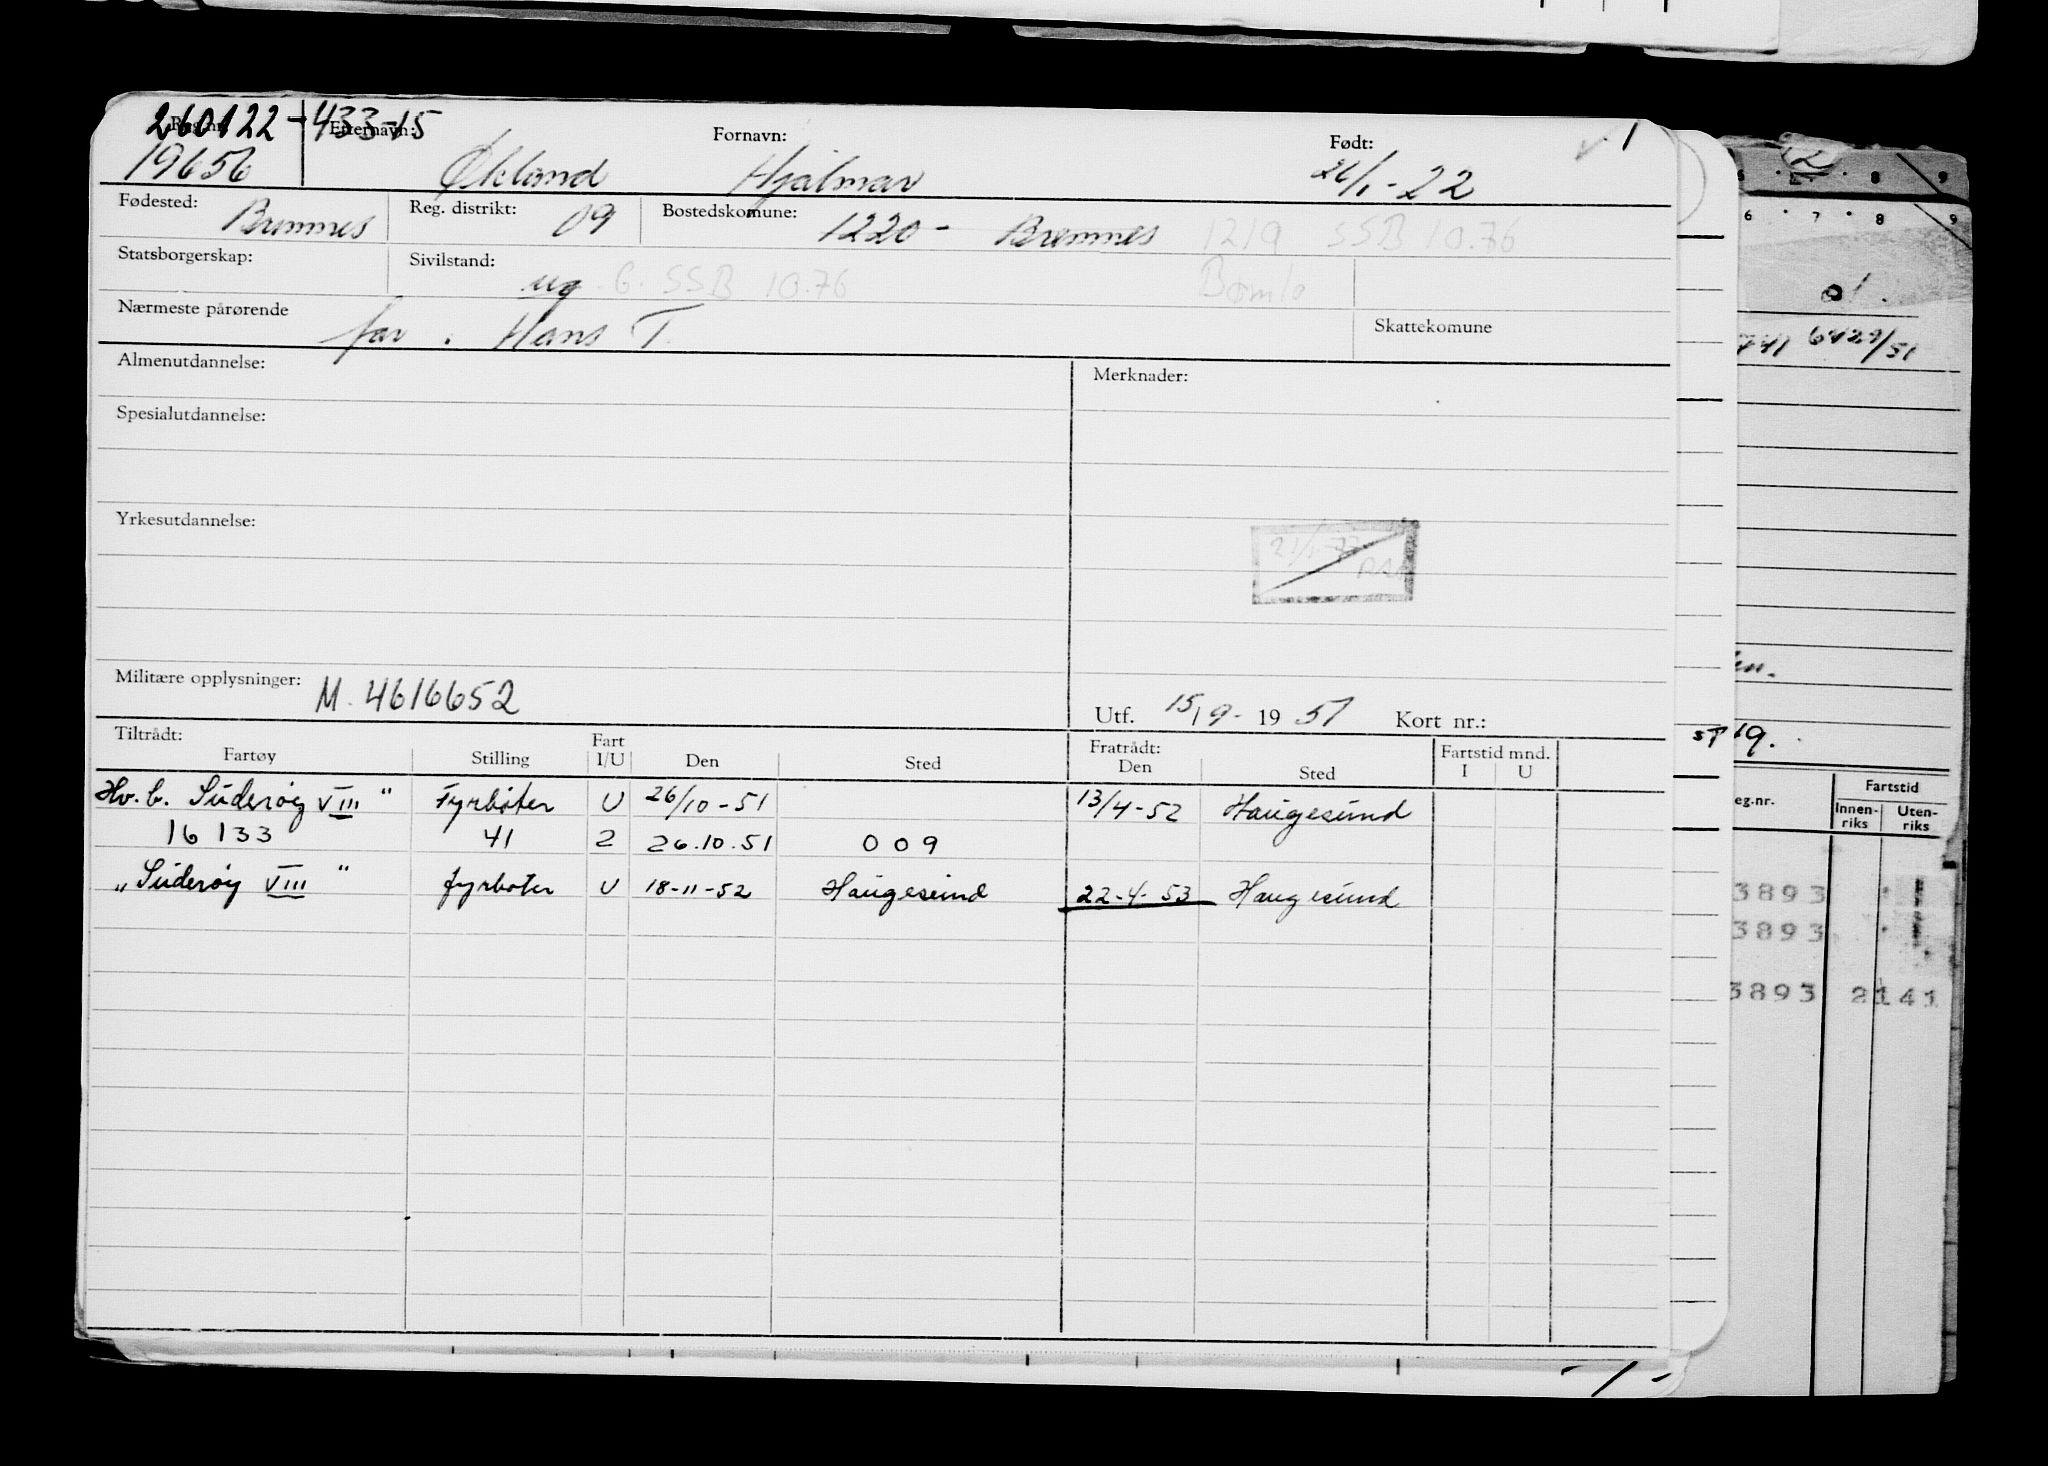 260122-433-15
Reg.nr. Etternavn: Fornavn: Født:
19656 Økland Hjalmar 26/1-22 1
Fødested: Bremnes Reg. distrikt: 09 Bostedskomune: 1220 - Bremnes 1219 SSB 10.76
Statsborgerskap: Sivilstand: ug G. SSB 10.76 Bømlo
Nærmeste pårørende far. Hans T. Skattekomune
Almenutdannelse: Merknader:
Spesialutdannelse:
Yrkesutdannelse:
Militære opplysninger: M. 4616652
Utf. 15/9- 19 51 Kort nr.:
Tiltrådt: Fratrådt: Fartstid mnd.
Fartøy Stilling Fart I/U Den Sted Den Sted I U
Hv. b. Suderøy VIII " Fyrbøter U 26/10-51 13/4-52 Haugesund
16 133 41 2 26.10.51 009
"Suderøy VIII " fyrbøter U 18-11-52 Haugesund 22-4-53 Haugesund
- 1 -
6 7 8 9
01.
6429/51
19.
eg.nr. Fartstid
Innen-riks Uten-riks
3893
3893
3893 2141